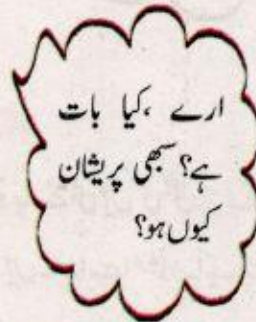 ارے ،کیا بات
ہے؟ سبھی پریشان
کیوں ہو؟